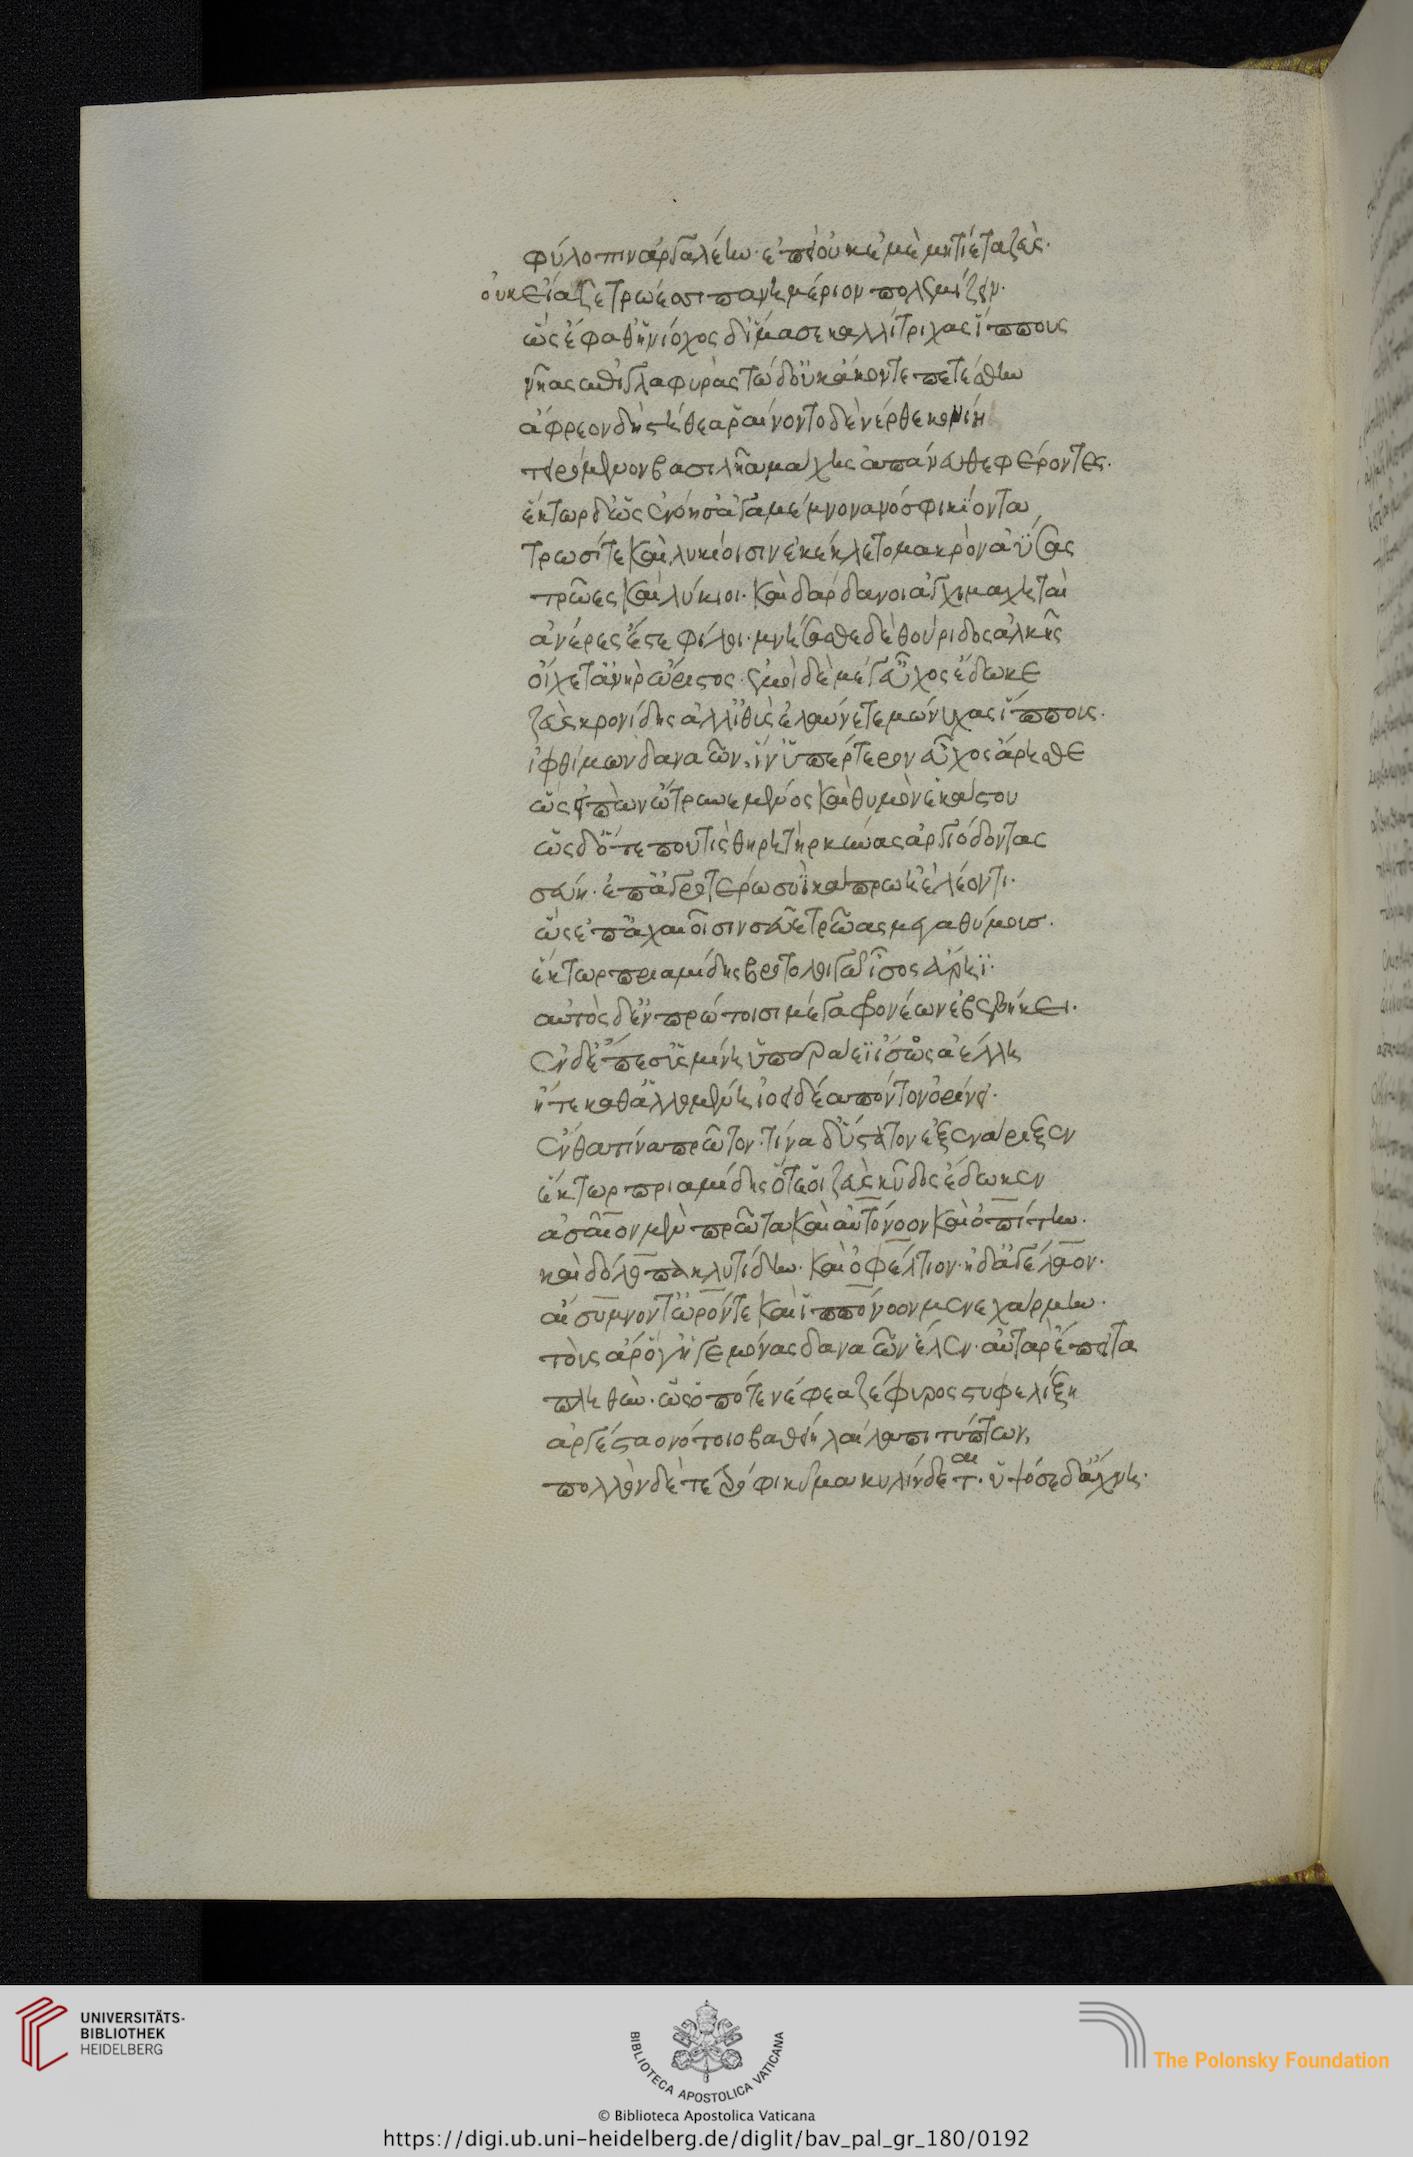 φύλοπιν ἀργαλέην· ἐπεὶ οὐκ ἐμὲ μητίετα ζεὺς·
οὐκ εἴασε τρώεσι πανημέριον πολεμίζειν·
ὣς ἔφαθ ἡνίοχος δ ἵμασε καλλίτριχας ἵππους
νῆας ἐπὶ γλαφυρὰς τὼ δ οὐκ ἄκοντε πετέσθην
ἄφρεον δὲ στήθεα ῥαίνοντο δὲ νέρθε κονίη
τειρόμενον βασιλῆα μάχης ἀπάνευθε φέροντες.
ἕκτωρ δ ὡς ἐνόησ ἀγαμέμνονα νόσφι κιόντα
τρωσί τε καὶ λυκίοισιν ἐκέκλετο μακρὸν ἀΰσας
τρῶες καὶ λύκιοι· καὶ δάρδανοι ἀγχιμαχηταὶ
ἀνέρες ἔστε φίλοι· μνήσασθε δὲ θούριδος ἀλκῆς
οἴχετ ἀνὴρ ὤριστος· ἐμοὶ δὲ μέγ εὖχος ἔδωκε
ζεὺς κρονίδης ἀλλ ἰθὺς ἐλαύνετε μώνυχας ἵππους·
ἰφθίμων δαναῶν, ἵν ὑπέρτερον εὖχος ἄρησθε
ὣς εἰπὼν ὤτρυνε μένος καὶ θυμὸν ἑκάστου
ὡς δ ὅτε που τὶς θηρητὴρ κύνας ἀργιόδοντας
σεύη· ἐπ ἀγροτέρω συῒ καπρίω ἠὲ λέοντι·
ὣς ἐπ ἀχαιοῖσιν σεῦε τρῶας μεγαθύμους·
ἕκτωρ πριαμίδης βροτολοιγῶ ἶσος ἄρηϊ·
αὐτὸς δ ἐν πρώτοισι μέγα φρονέων ἐβεβήκει·
ἐν δ ἔπεσ ὑσμίνη ὑπεραέϊ ἶσος ἀέλλη
ἥ τε καθαλλομένη ἰοειδέα πόντον ὀρίνει·
ἔνθα τίνα πρῶτον· τίνα δ ὕστατον ἐξενάριξεν
ἕκτωρ πριαμίδης ὅτε οἱ ζεὺς κῦδος ἔδωκεν
ἀσαῖον μὲν πρῶτα καὶ αὐτόνοον καὶ ὀπίτην·
καὶ δόλοπα κλυτίδην· καὶ ὀφέλτιον· ἠδ ἀγέλαον·
αἴσυμνον τ ὦρόν τε καὶ ἱππόνοον μενεχάρμην·
τοὺς ἄρ ὅγ ἡγεμόνας δαναῶν ἕλεν· αὐτὰρ ἔπειτα
πληθὺν· ὡς ὁπότε νέφεα ζέφυρος στυφελίξη
ἀργέσταο νότοιο βαθείη λαίλαπι τύπτων,
πολλὸν δὲ τε τρόφι κῦμα κυλίνδεται· ὑψόσε δ ἄχνη·
UNIVERSITÄTS-
BIBLIOTHEK
HEIDELBERG
BIBLIOTECA APOSTOLICA VATICANA
The Polonsky Foundation
© Biblioteca Apostolica Vaticana
https://digi.ub.uni-heidelberg.de/diglit/bav_pal_gr_180/0192